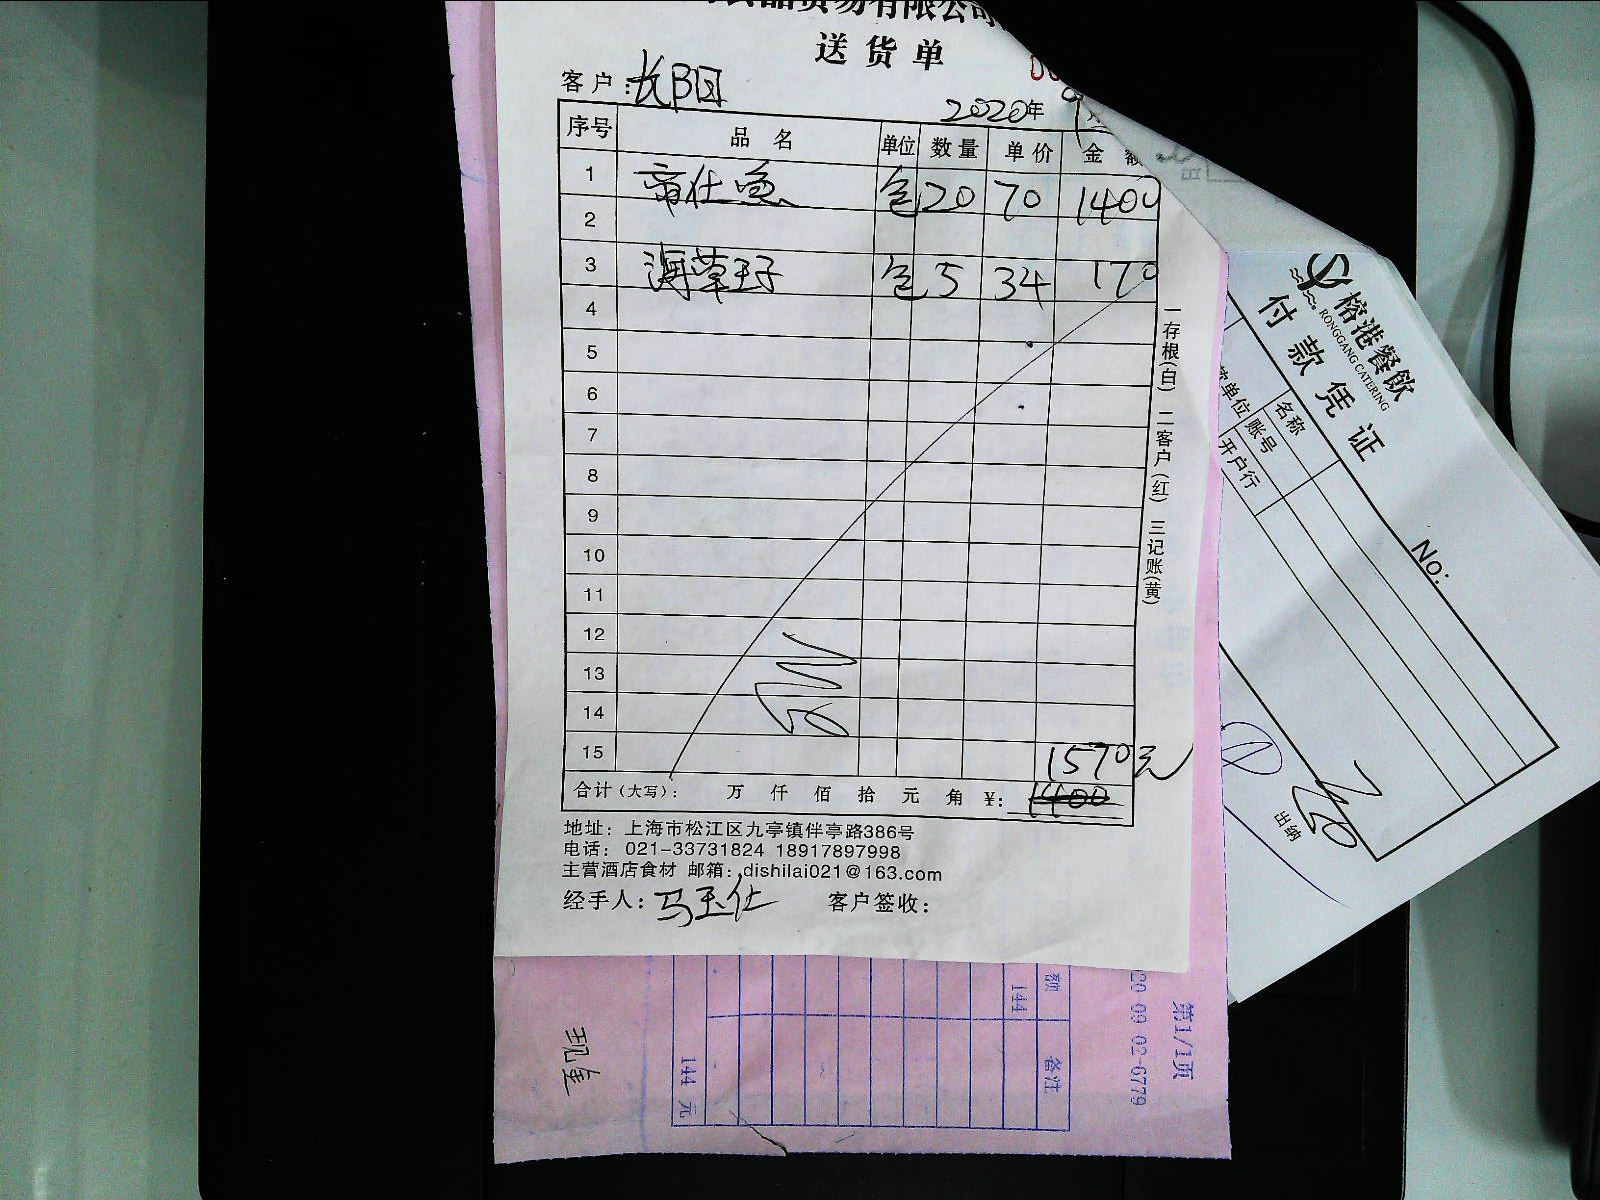 品贸易有限公司
送货单
客户：长阳
2020年 9月
序号 品名 单位 数量 单价 金额
1 帝仕鱼 包 20 70 1400
2
3 海草王子 包 5 34 170
4
5
6
7
8
9
10
11
12
13
14
15 1570元
合计（大写）： 万 仟 佰 拾 元 角 ¥: 1400
地址：上海市松江区九亭镇伴亭路386号
电话：021-33731824 18917897998
主营酒店食材 邮箱：dishilai021@163.com
经手人：马玉仕 客户签收：
一存根(白) 二客户(红) 三记账(黄)
榕港餐飲
RONGGANG CATERING
付款凭证
No:
款单位
名称
账号
开户行
出纳
第1/1页
20 09 02-6779
额 备注
144
144 元
现金